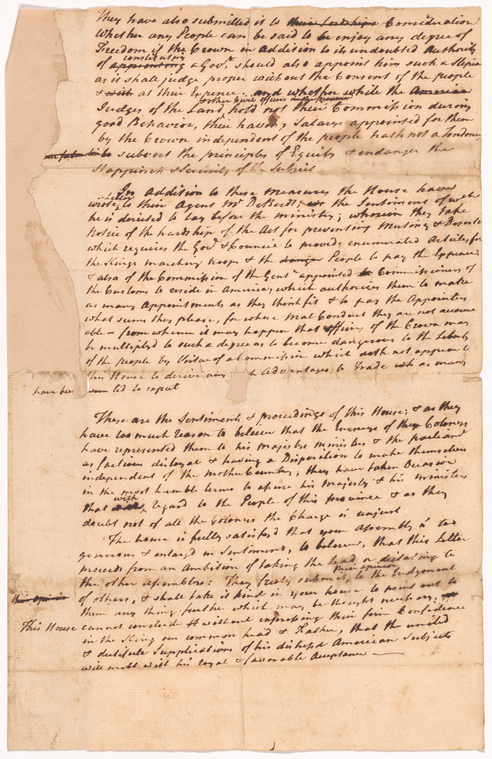 They have also submitted it to their Lordships Consideration
Whether any People can be said to enjoy any degree of
Freedom if the Crown in addition to its undoubted Authority
constituting
of appointing a Govr. should also appoint him such a Stipend
as it shall judge proper without the Consent of the people
& at their Expence. and whether while the American
& other Civil officers
Judges of the Land hold not their Commission during
good Behavior, their having Salarys appointed for them
by the Crown independent of the people hath not a tendency
to subvert the principles of Equity & endanger the
Happiness & Security of the Subject
In Addition to these measures the House have
wrote a Letter to their Agent Mr DeBerdt, the Sentiments of wch
he is directed to lay before the ministry; wherein they take
Notice of the hardship of the Act for preventing Mutiny & Desertion
which requires the Govr & Council to provide enumerated Articles for
the Kings marching troops & the People to pay the Expence
& also of the Commission of the Gentn appointed Commissioners of
the Customs to reside in America, which authorizes them to make
as many Appointments as they think fit & to pay the Appointees
what sums they please, for whose Mal Conduct they are not account
able – from whence it may happen that officers of the Crown may
be multiplyd to such a degree as to become dangerous to the Liberty
of the people by Virtue of a Commission which doth not appear to
this House to derive any Advantages to Trade wch as many
have been led to expect
These are the Sentiments & proceedings of this House; & as they
have too much reason to believe that the Enemys of the Colonys
have represented them to his Majestys Ministers & the parliament
as factious disloyal & having a Disposition to make themselves
independent of the Mother Country, they have taken Occasion
in the most humble terms to assure his Majesty & his ministers
that with regard to the People of this province & as they
doubt not of all the Colonys the Charge is unjust
The house is fully satisfied that your Assembly is too
generous & enlargd in Sentiment, to believe, that this Letter
proceeds from an Ambition of taking the lead or dictating to
the other assemblys: They freely submit their opinion to the Judgment
of others, & shall take it kind in your house to point out to
them any thing further which may be thought necessary,
This House cannot conclude it without expressing their firm Confidence
in the King our common head & Father, that the united
& dutifull Supplications of his distressd American Subjects
will meet with his royal & favorable Acceptance